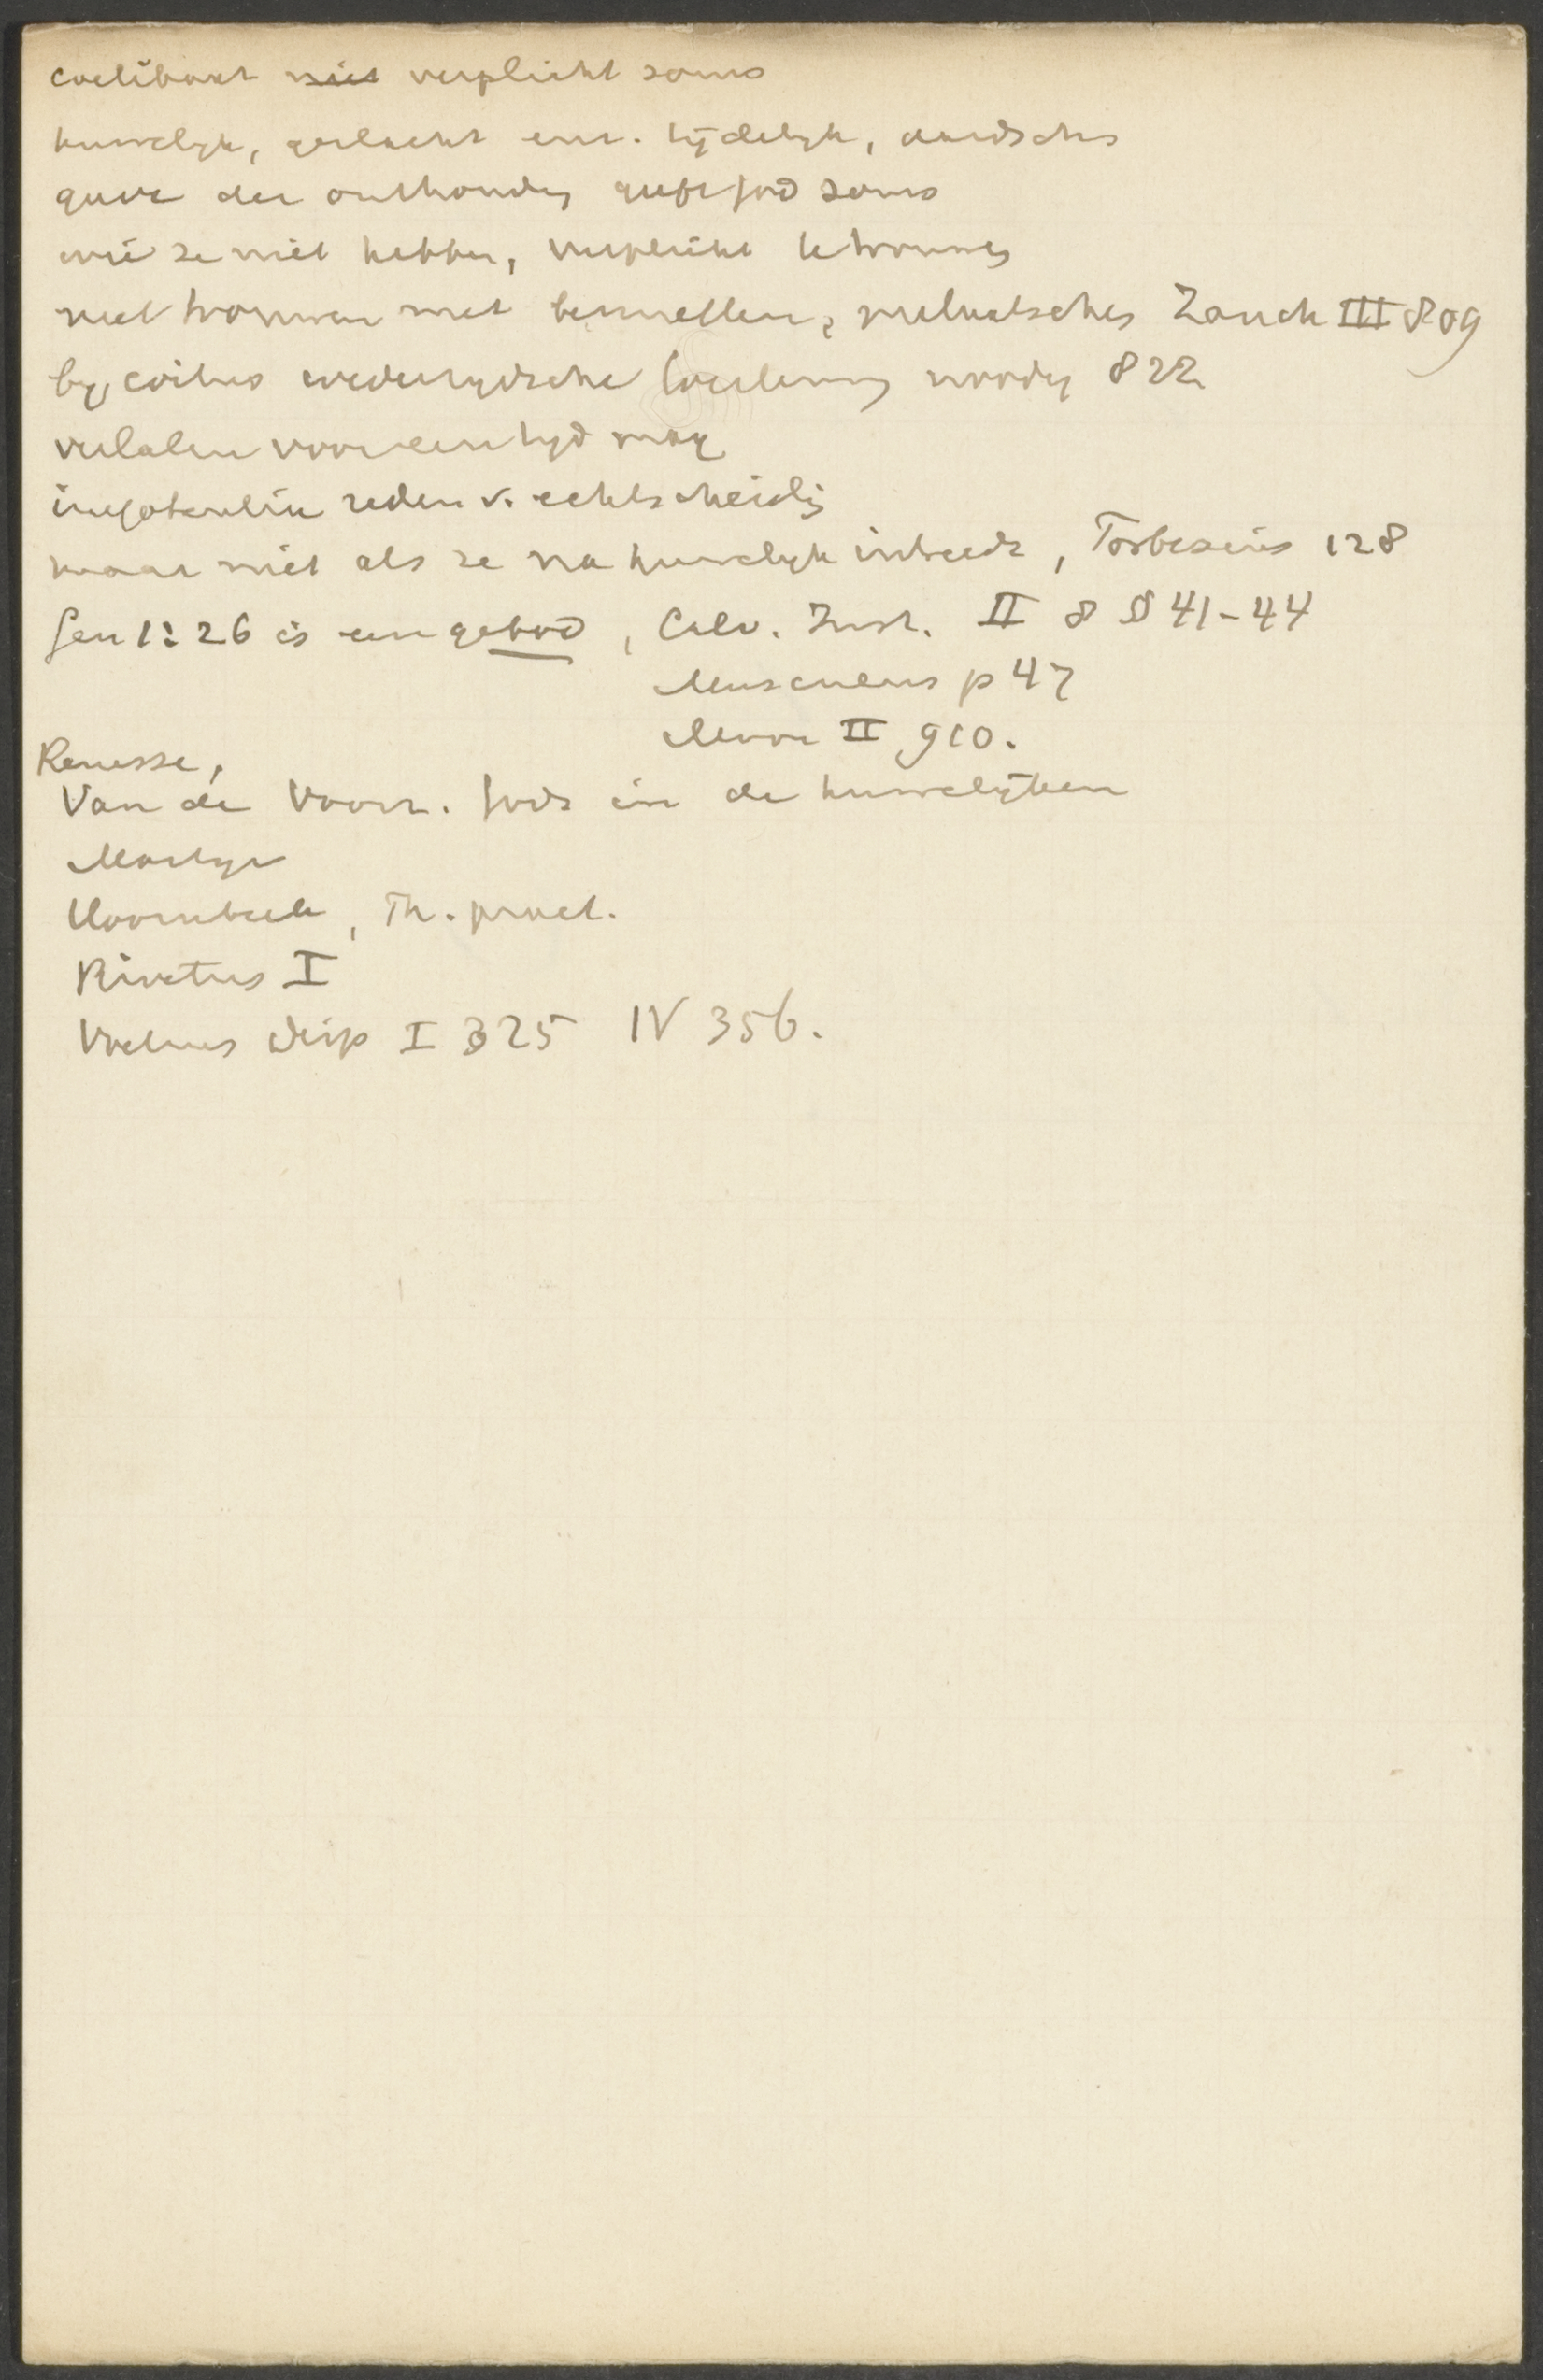 coelibaat niet verplicht soms
huwelijk, geslacht enz. tijdelijk, aardsch
gave der onthoudg geeft God soms
wie ze niet hebben, verplicht te trouwen
niet trouwen met besmetten, melaatschen Zanch III 809
bij coitus wederzijdsche toestemmg noodig 822
verlaten voor een tijd mag
impotentia reden v. echtscheidg
maar niet als ze na huwelijk intreedt, Forbesius 128
Gen 1:26 is een gebod, Calv. Inst. II 8 § 41-44
Musculus p 47
Moor II 910.
Renesse,
Van de Voorz. Gods in de huwelijken
Martyr
Hoornbeek, Th. pract.
Rivetus I
Voetius Disp I 325 IV 356.